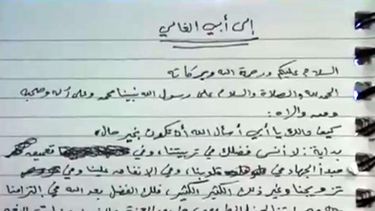 إلى أبي الغالي
السلام عليكم ورحمة الله وبركاته
الحمد لله والصلاة والسلام على رسول الله نبينا محمد وعلى آله وصحبه
ومن والاه :
كيف حالك يا أبي أسأل الله أن تكون بخير حال
بداية : لا أنسى فضلك في تربيتنا وفي
مبدأ الجهاد في قلوبنا وفي الإنفاق علينا وفي
تزويجنا وغير ذلك الكثير الكثير، فلك الفضل بعد الله في التزامنا